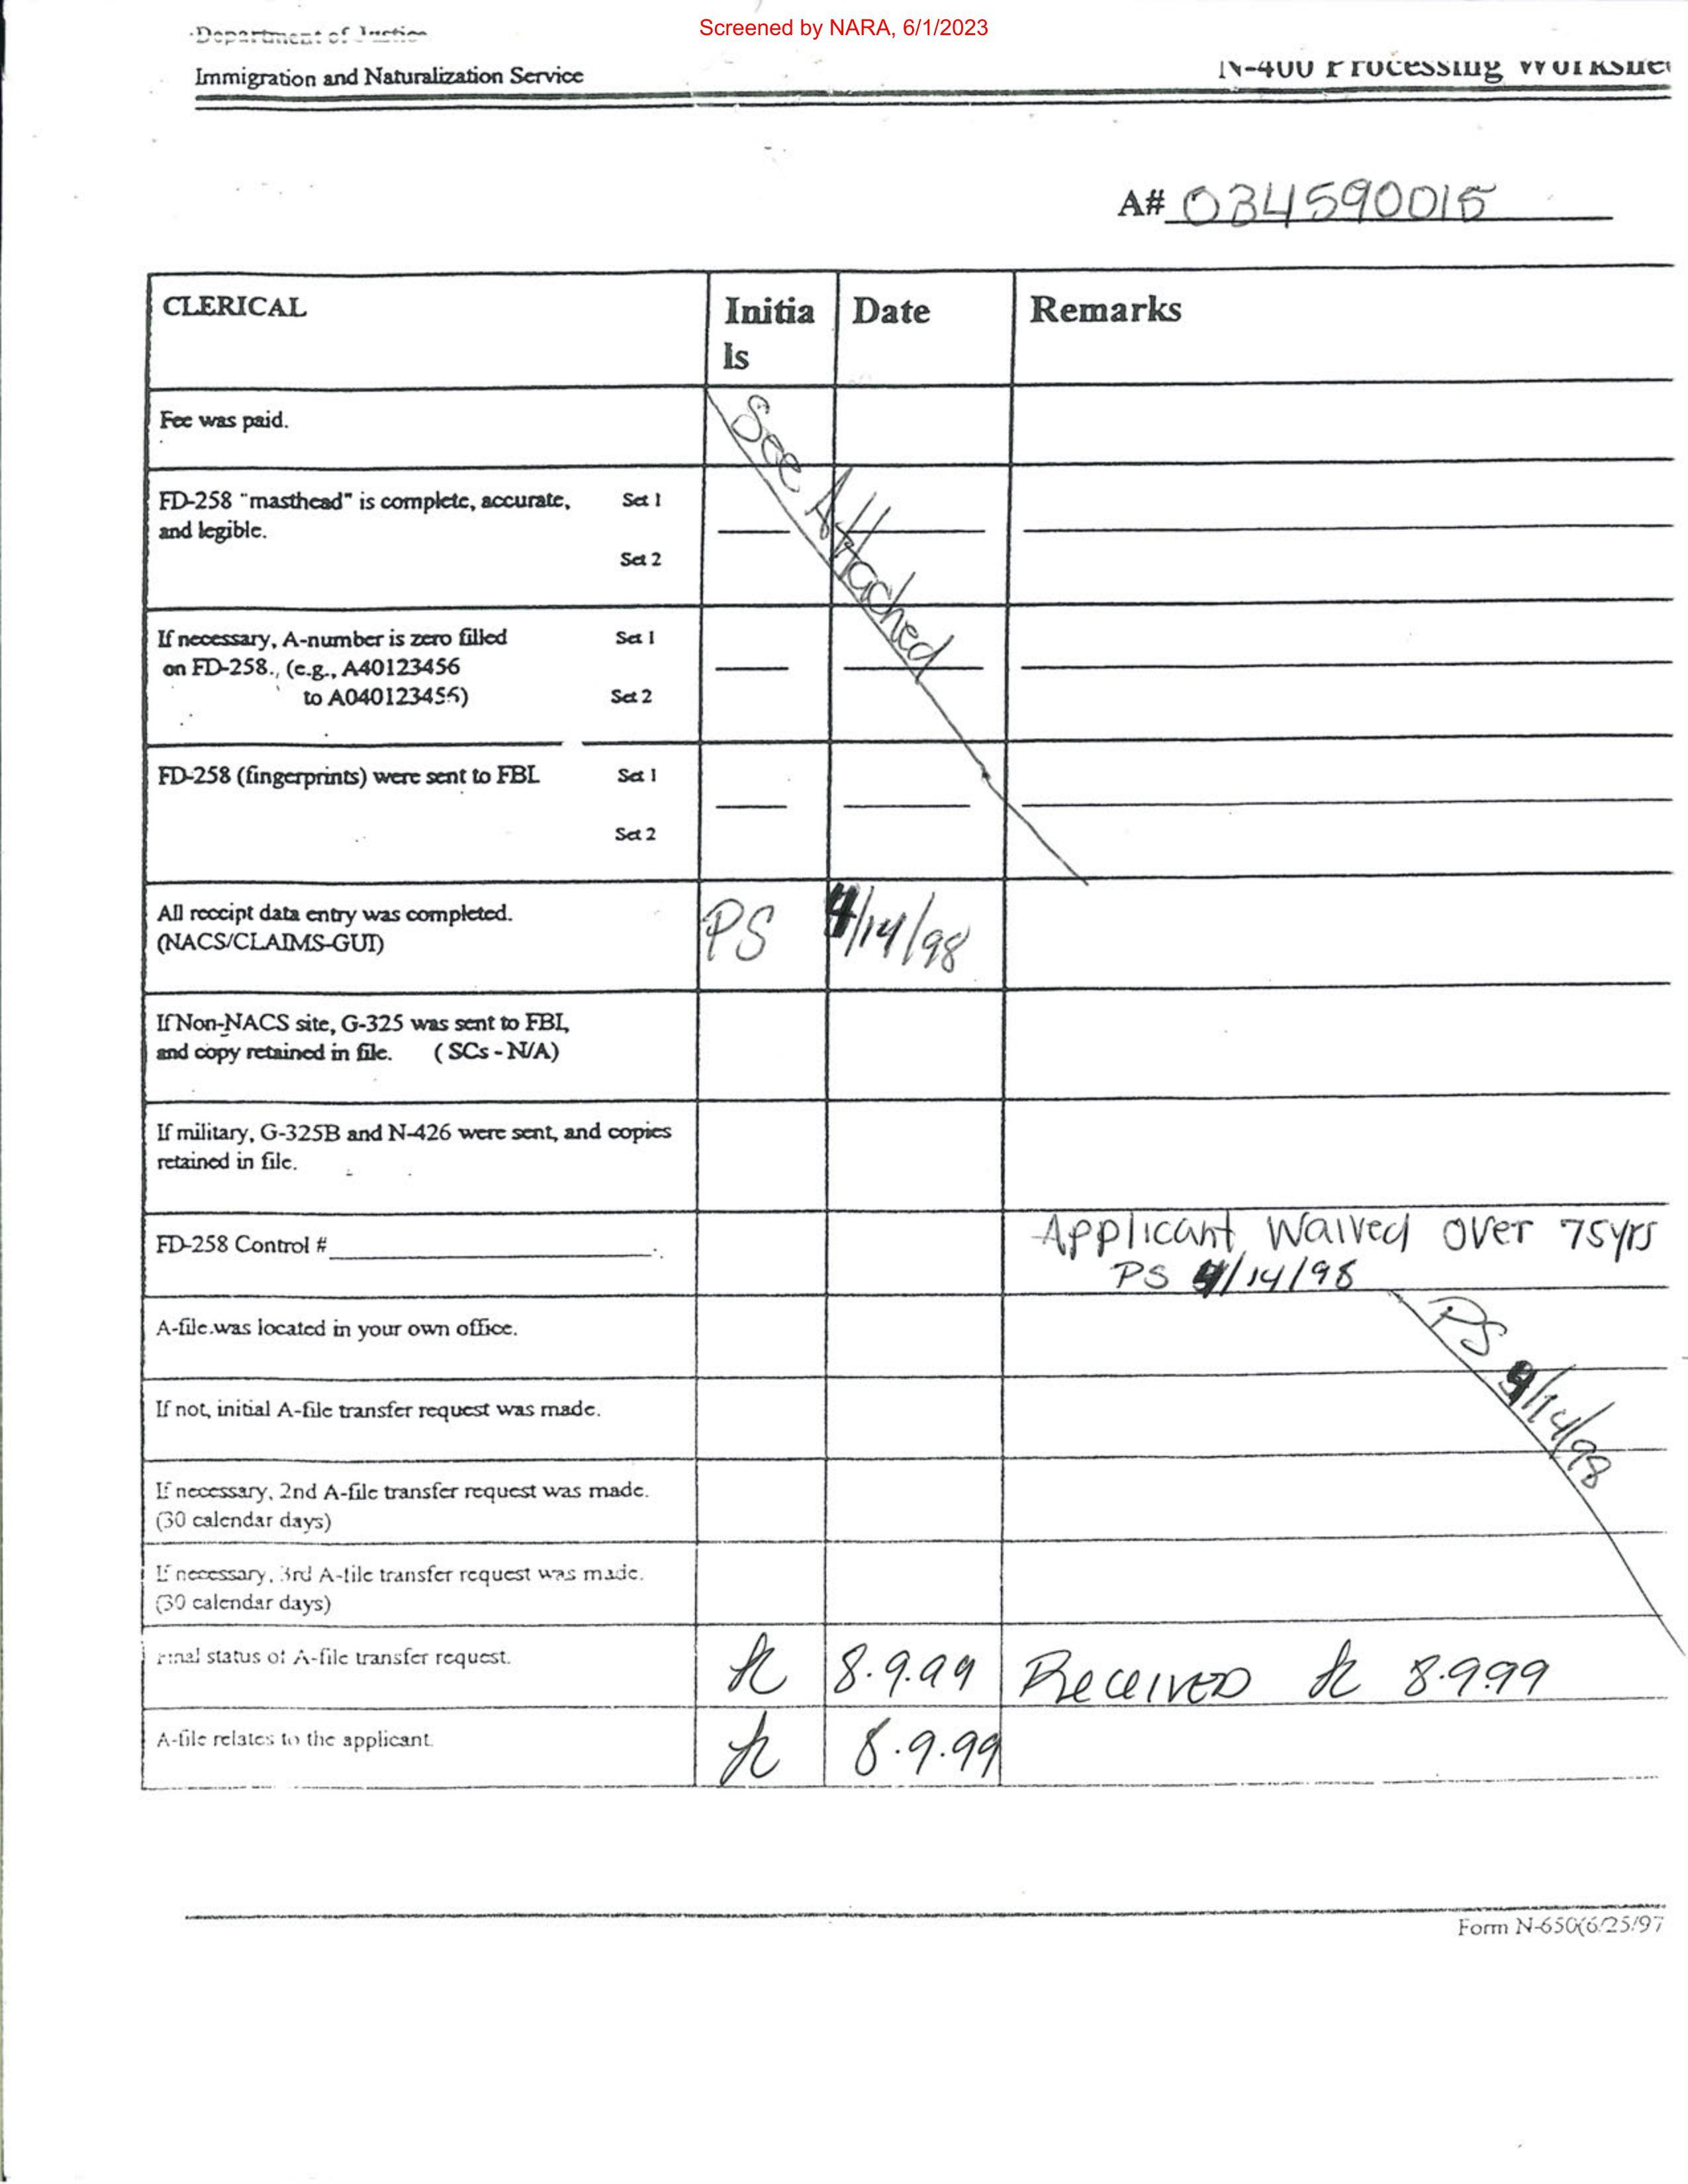 Screened by NARA, 6/1/2023
Department of Justice
Immigration and Naturalization Service
N-400 Processing Workshee
A# 034590015
CLERICAL
Initia
ls
Date
Remarks
Fee was paid.
See Attached
FD-258 "masthead" is complete, accurate, Set 1
and legible.
Set 2
If necessary, A-number is zero filled Set 1
on FD-258., (e.g., A40123456
to A040123456) Set 2
FD-258 (fingerprints) were sent to FBI. Set 1
Set 2
All receipt data entry was completed.
(NACS/CLAIMS-GUI)
PS 4/14/98
If Non-NACS site, G-325 was sent to FBI,
and copy retained in file. ( SCs - N/A)
If military, G-325B and N-426 were sent, and copies
retained in file.
FD-258 Control #
Applicant Waived over 75yrs
PS 4/14/98
A-file was located in your own office.
PS 4/14/98
If not, initial A-file transfer request was made.
If necessary, 2nd A-file transfer request was made.
(30 calendar days)
If necessary, 3rd A-file transfer request was made.
(30 calendar days)
Final status of A-file transfer request.
8.9.99 Received 8.9.99
A-file relates to the applicant.
8.9.99
Form N-650(6/25/97